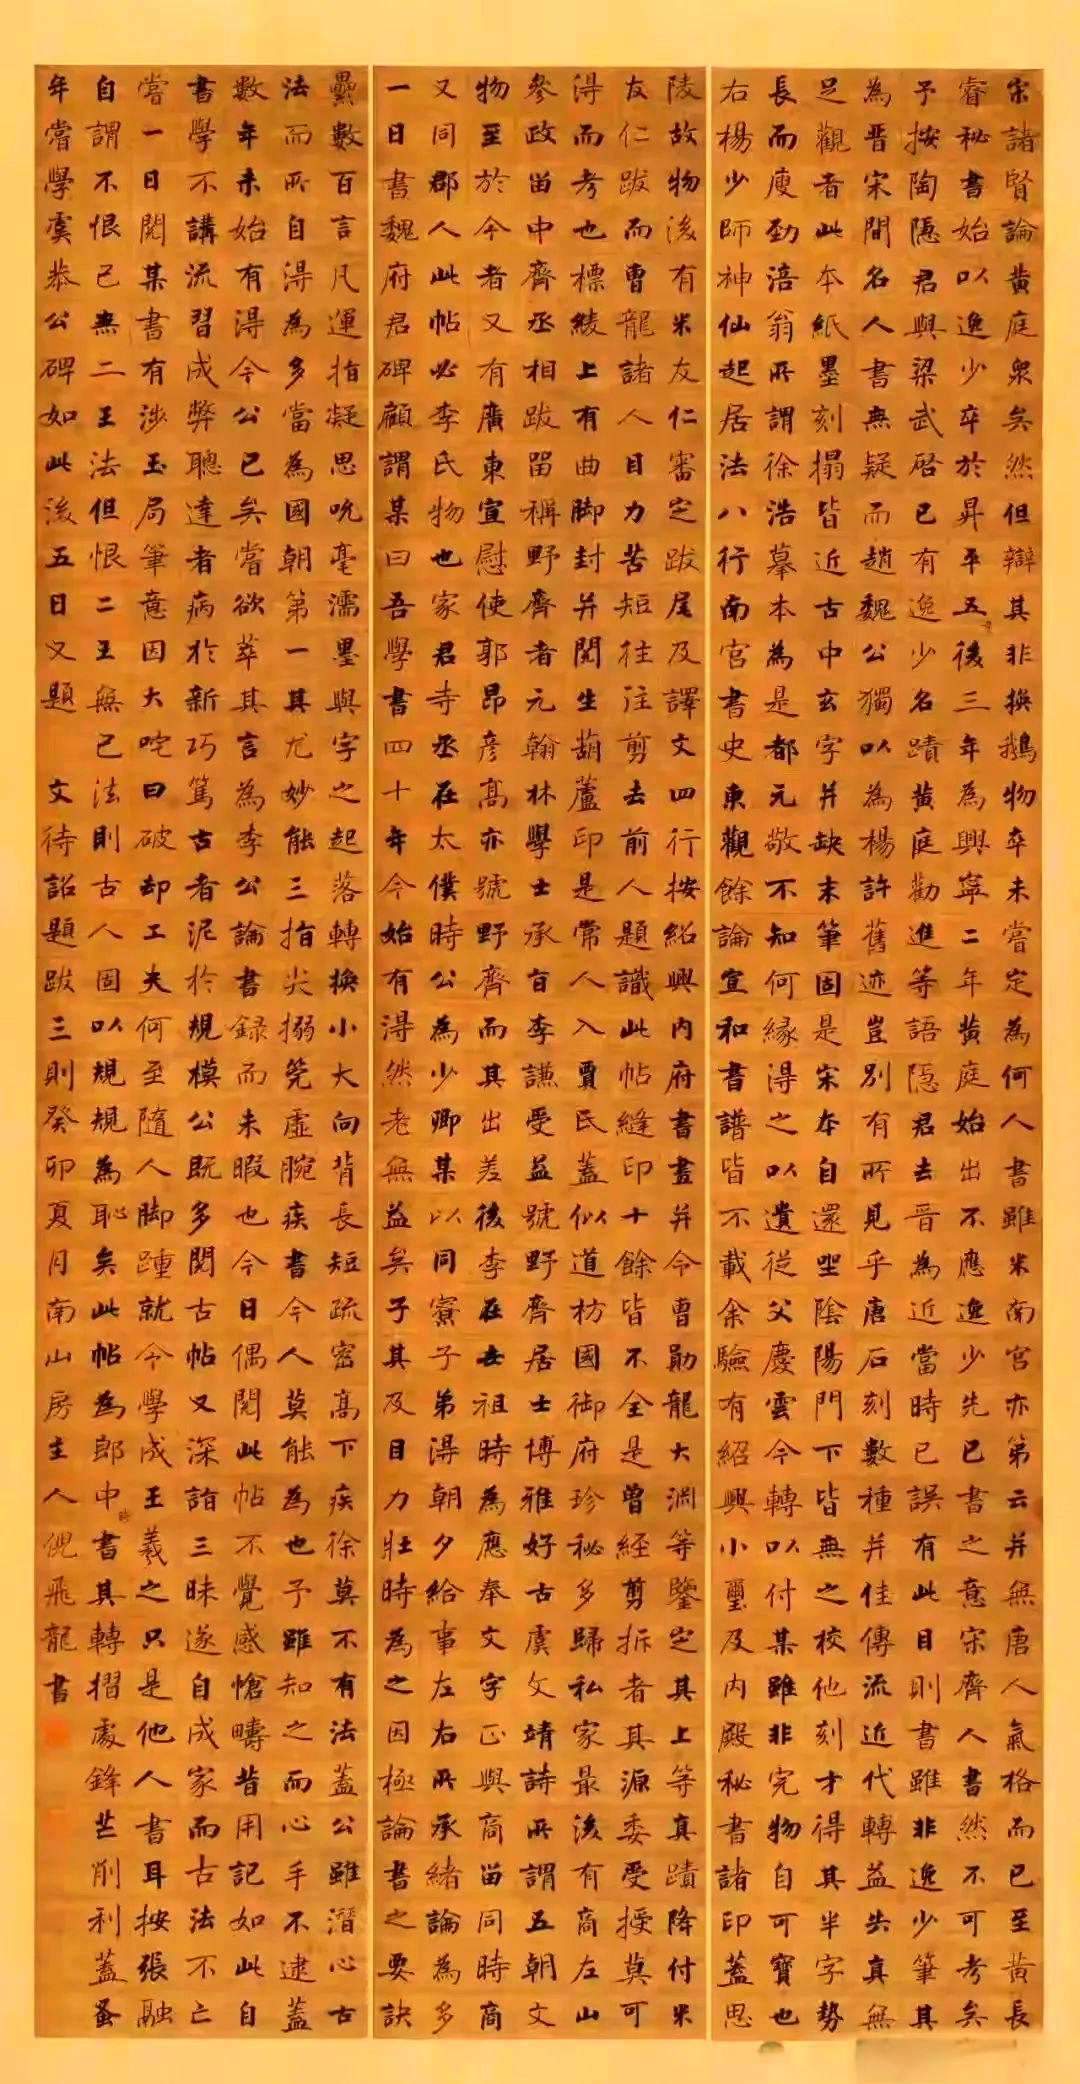 宋諸賢論黄庭衆矣然但辯其非換鵝物卒未嘗定為何人書雖米南宫亦第云并無唐人氣格而已至黄長
睿秘書始以逸少卒於昇平五後三年為興寧二年黄庭始出不應逸少先已書之意宋齊人書然不可考矣
予按陶隱君與梁武啓已有逸少名蹟黄庭勸進等語隱君去晋為近當時已誤有此目則書雖非逸少筆其
為晉宋間名人書無疑而趙魏公獨以為楊許舊迹豈别有所見乎唐石刻數種并佳傳流近代轉益失真無
足觀者此本紙墨刻搨皆近古中玄字并缺末筆固是宋本自還㘴陰陽門下皆無之校他刻才得其半字勢
長而廋勁涪翁所謂徐浩摹本為是都元敬不知何緣得之以遺從父慶雲今轉以付某雖非完物自可寶也
右楊少師神仙起居法八行南宫書史東觀餘論宣和書譜皆不載余驗有紹興小璽及内殿秘書諸印蓋思
陵故物後有米友仁審定跋尾及譯文四行按紹興内府書畫并令曹勛龍大淵等鑒定其上等真蹟降付米
友仁跋而曹龍諸人目力苦短往注剪去前人題識此帖縫印十餘皆不全是曾經剪拆者其源委受授莫可
得而考也標綾上有曲脚封并閱生葫蘆印是常人入賈氏蓋似道枋國御府珍秘多歸私家最後有商左山
參政畄中齊丞相跋畱稱野齊者元翰林學士承旨李謙受益號野齊居士博雅好古虞文靖詩所謂五朝文
物至於今者又有廣東宣慰使郭昂彦高亦號野齊而其出差後李在世祖時為應奉文字正與商畄同時商
又同郡人此帖必李氏物也家君寺丞在太僕時公為少卿某以同寮子弟得朝夕給事左右所承緒論為多
一日書魏府君碑顧謂某曰吾學書四十年今始有得然老無益矣子其及目力壯時為之因極論書之要訣
纍數百言凡運指凝思吮毫濡墨與字之起落轉換小大向背長短疏密高下疾徐莫不有法蓋公雖潛心古
法而所自得為多當為國朝第一其尤妙能三指尖搦筦虛腕疾書今人莫能為也予雖知之而心手不逮蓋
數年未始有得今公已矣嘗欲萃其言為李公論書録而未暇也今日偶閱此帖不覺感愴疇昔用記如此自
書學不講流習成弊聰達者病於新巧篤古者泥於規模公既多閱古帖又深詣三昧遂自成家而古法不亡
嘗一日閱某書有涉玉局筆意因大咤曰破却工夫何至隨人脚踵就令學成王羲之只是他人書耳按張融
自謂不恨己無二王法但恨二王無己法則古人固以規規為恥矣此帖為郎中書其轉摺處鋒芒削利蓋蚤
年嘗學虞恭公碑如此後五日又題 文待詔題跋三則癸卯夏月南山房主人倪飛龍書